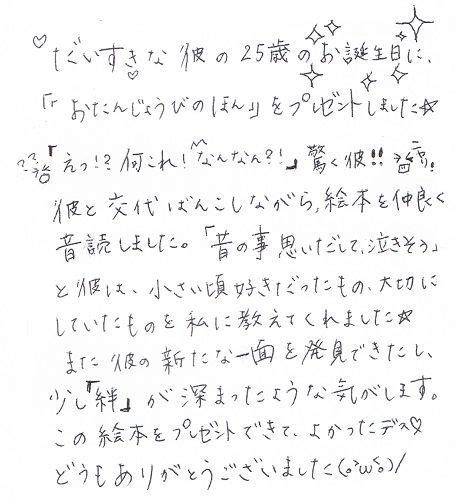 ♡だいすきな彼の25歳のお誕生日に、
「『おたんじょうびのほん』」をプレゼントしました☆
「えっ!?何これ!なんなん?!」驚く彼!!
彼と交代ばんこしながら、絵本を仲良く
音読しました。「昔の事思いだして、泣きそう」
と彼は、小さい頃好きだったもの、大切に
していたものを私に教えてくれました☆
また彼の新たな一面を発見できたし、
少し『絆』が深まったような気がします。
この絵本をプレゼントできて、よかったデス♡
どうもありがとうございました(。°ω°。)/